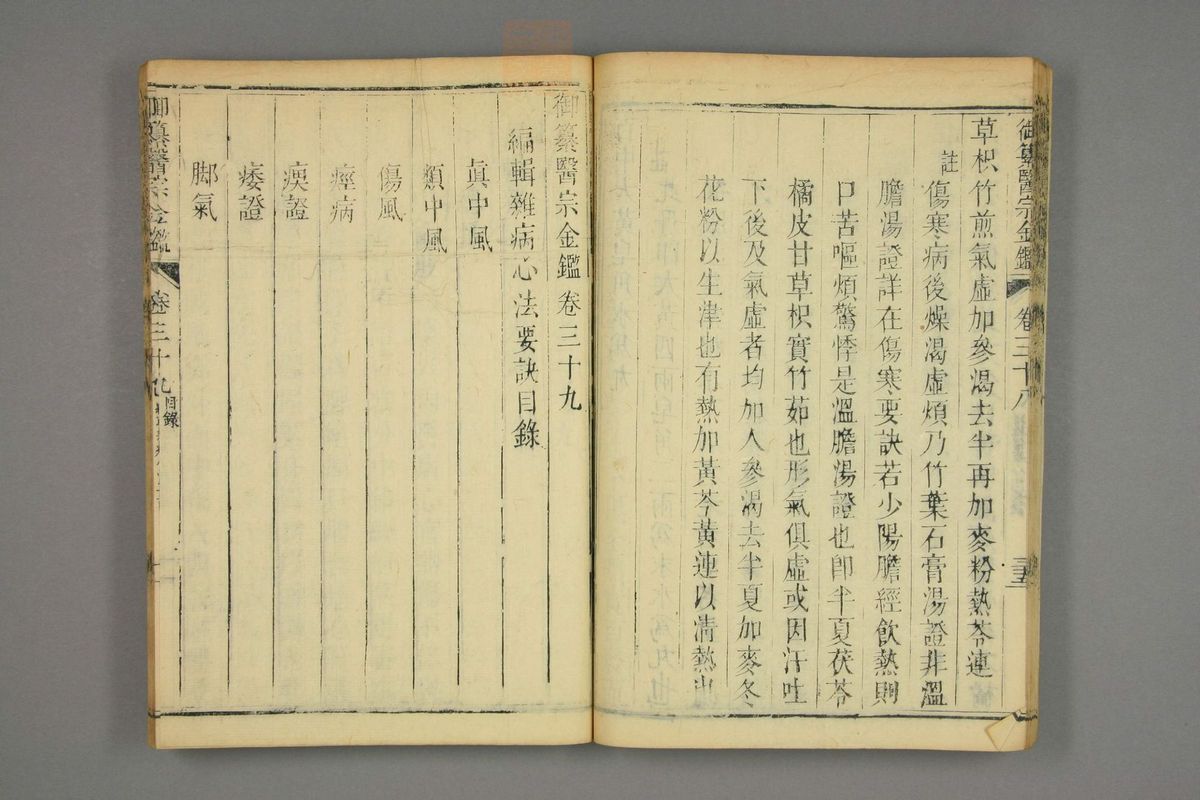 御纂醫宗金鑑 卷三十八
草枳竹煎氣虛加參渴去半再加麥粉熱芩連
註 傷寒病後燥渴虛煩乃竹葉石膏湯證非溫
膽湯證詳在傷寒要訣若少陽膽經飲熱則
口苦嘔煩驚悸是溫膽湯證也卽半夏茯苓
橘皮甘草枳實竹茹也形氣俱虛或因汗吐
下後及氣虛者均加人參渴去半夏加麥冬
花粉以生津也有熱加黃芩黃連以清熱也
御纂醫宗金鑑 卷三十九
編輯雜病心法要訣目錄
眞中風
類中風
傷風
痙病
痿證
腳氣
御纂醫宗金鑑 卷三十九 目錄